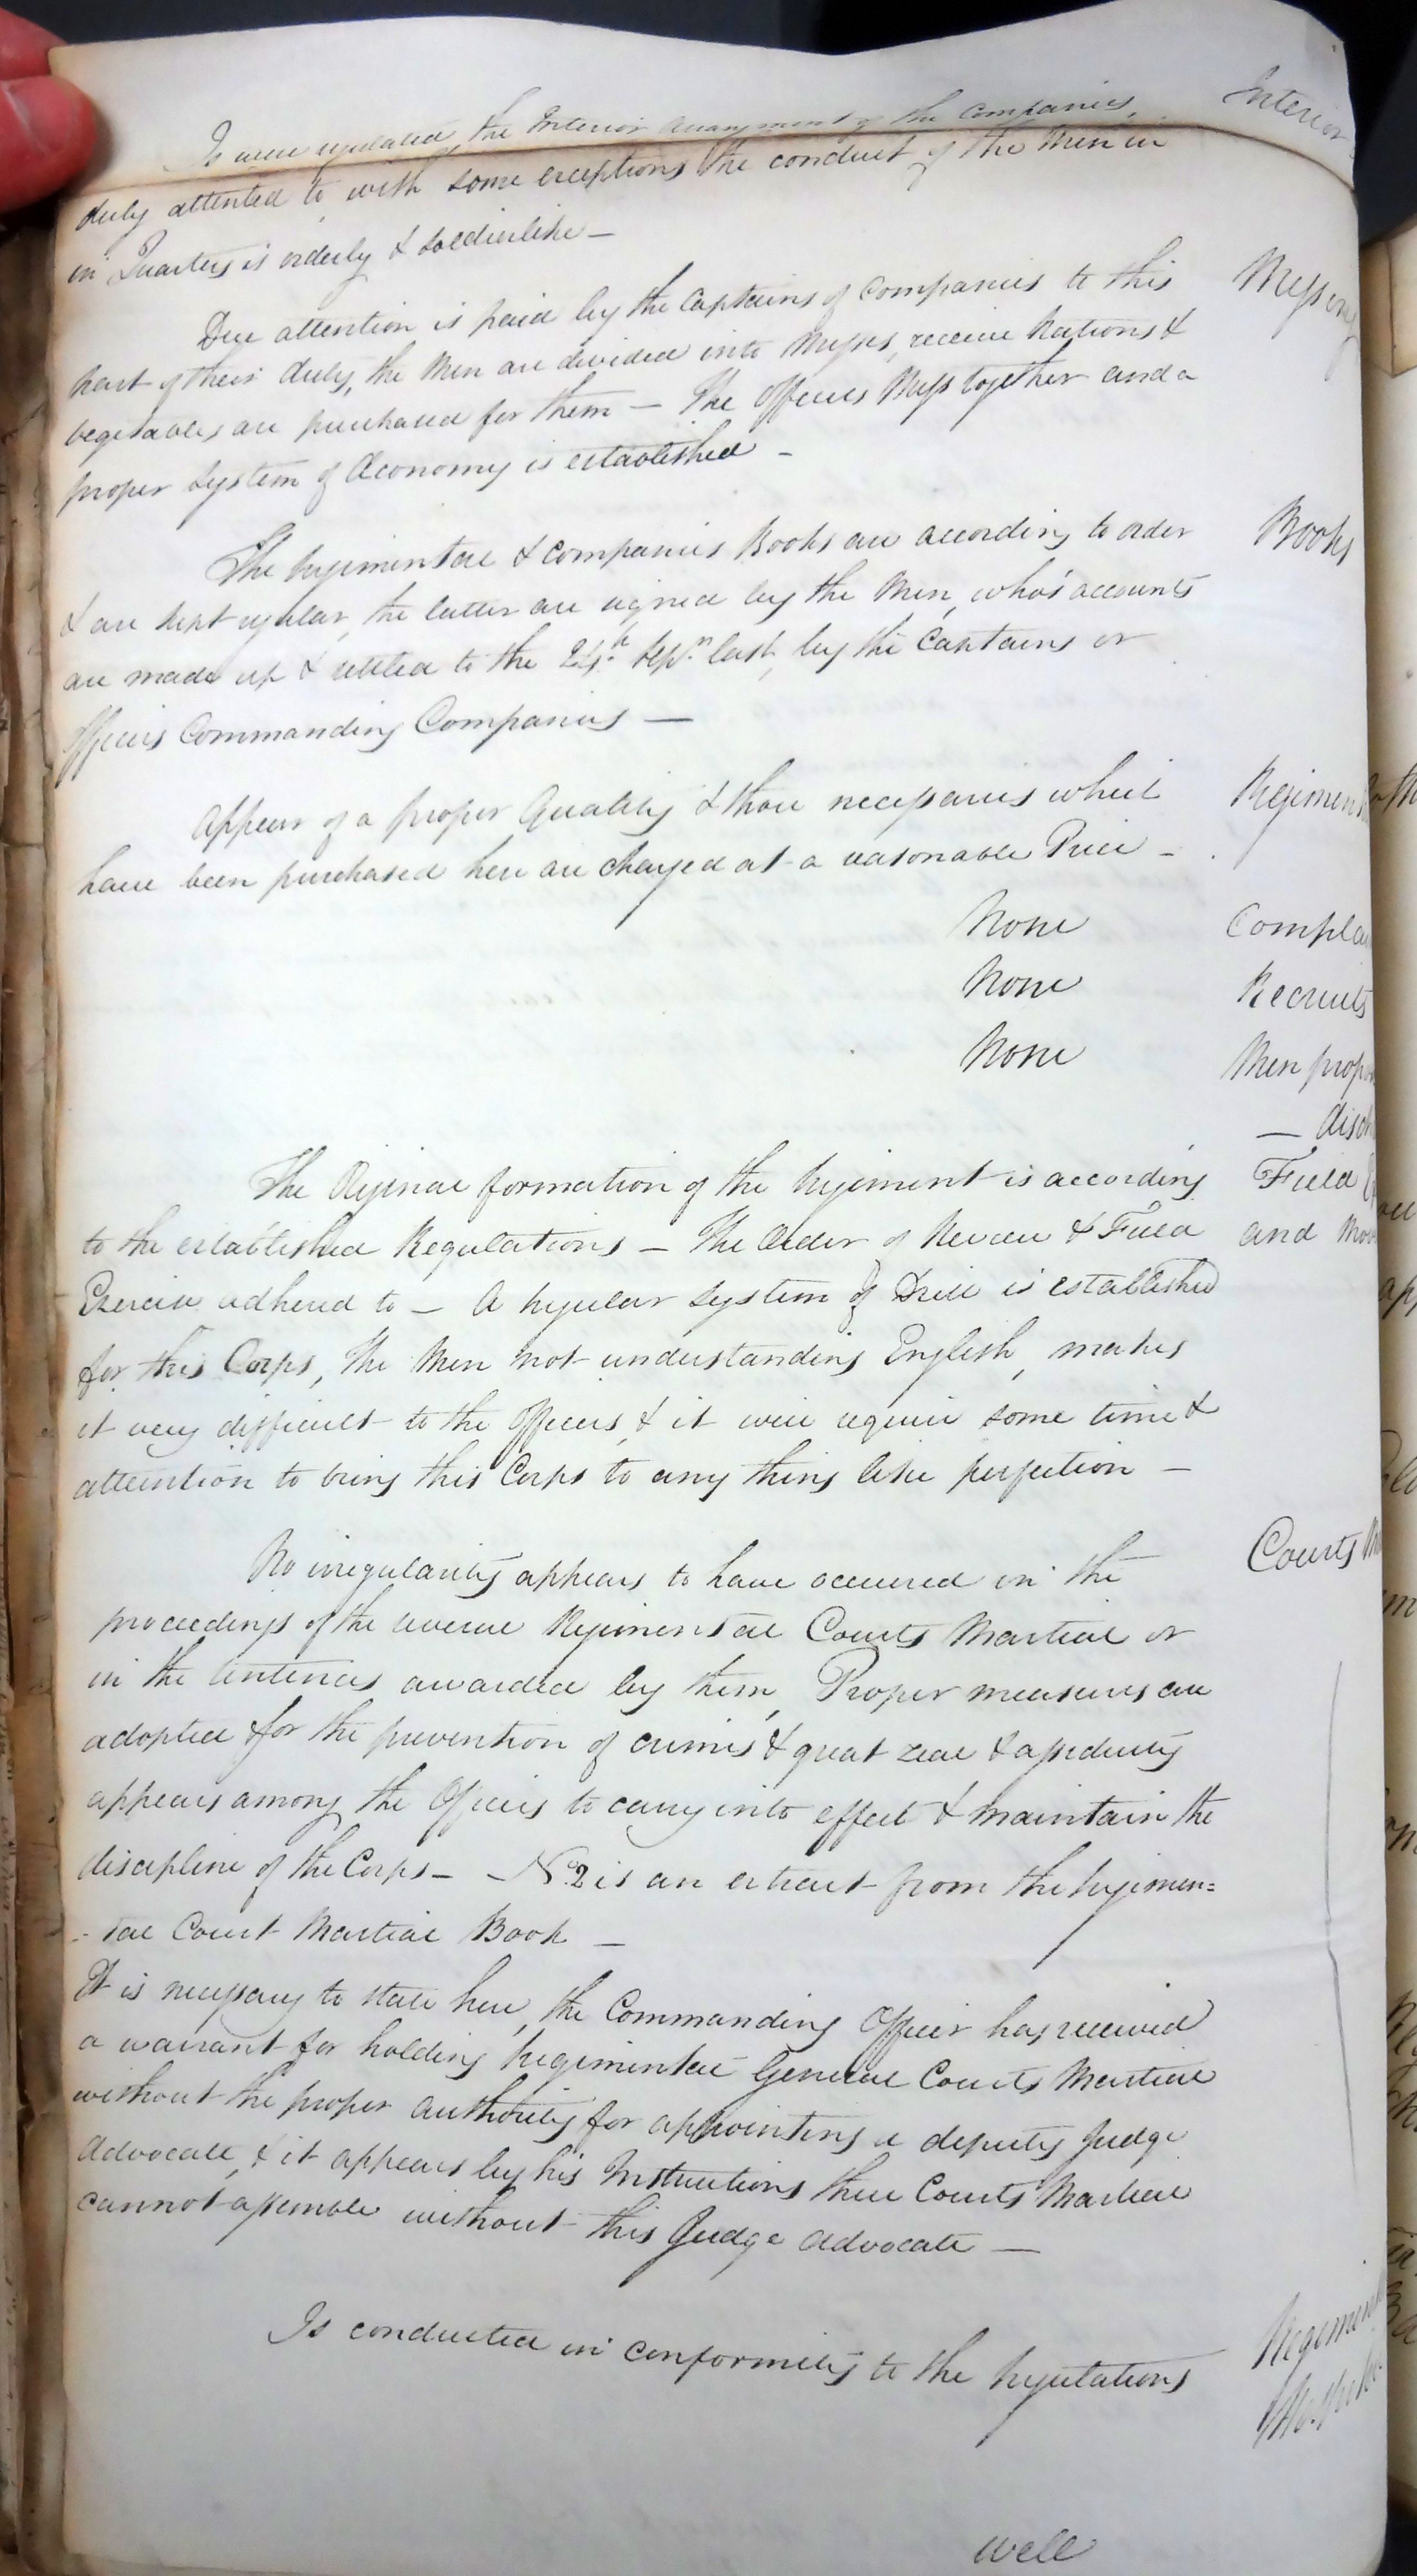 Is well regulated, the Interior Arrangement of the Companies, Interior
duly attented to with some exceptions the conduct of the Men in
in Quarters is orderly & Soldierlike —
Due attention is paid by the Captains of Companies to this Messing
part of their duty, the Men are divided into Messes, receive Rations &
vegetables are purchased for them — The Officers Mess together and a
proper System of Œconomy is established —
The Regimental & Companies Books are according to order Books
& are kept regular, the latter are signed by the Men, who's accounts
are made up & settled to the 24th Sepr. last, by the Captains or
Officers Commanding Companies —
Appear of a proper Quality & those necessaries which Regimen
have been purchased here are charged at a reasonable Price —
None Compla
None Recruits
None Men prop
— disch
The Original formation of the Regiment is according Field
to the established Regulations — The Order of Review & Field and Mov
Exercise adhered to — A regular System of Drill is established
for this Corps, the Men not understanding English, makes
it very difficult to the Officers, & it will require some time &
attention to bring this Corps to any thing like perfection —
No irregularity appears to have occured in the Courts M
proceedings of the several Regimental Courts Martial or
in the Sentences awarded by them, Proper measures are
adopted for the prevention of crimes & great zeal & assiduity
appears among the Officers to carry into effect & maintain the
discipline of the Corps — No. 2 is an extract from the Regimen=
-tal Court Martial Book —
It is necessary to state here, the Commanding Officer has received
a warrant for holding Regimental General Courts Martial
without the proper Authority for appointing a deputy Judge
Advocate, & it appears by his Instructions these Courts Martial
cannot assemble without this Judge Advocate —
Is conducted in conformity to the Regulations Regimen
well